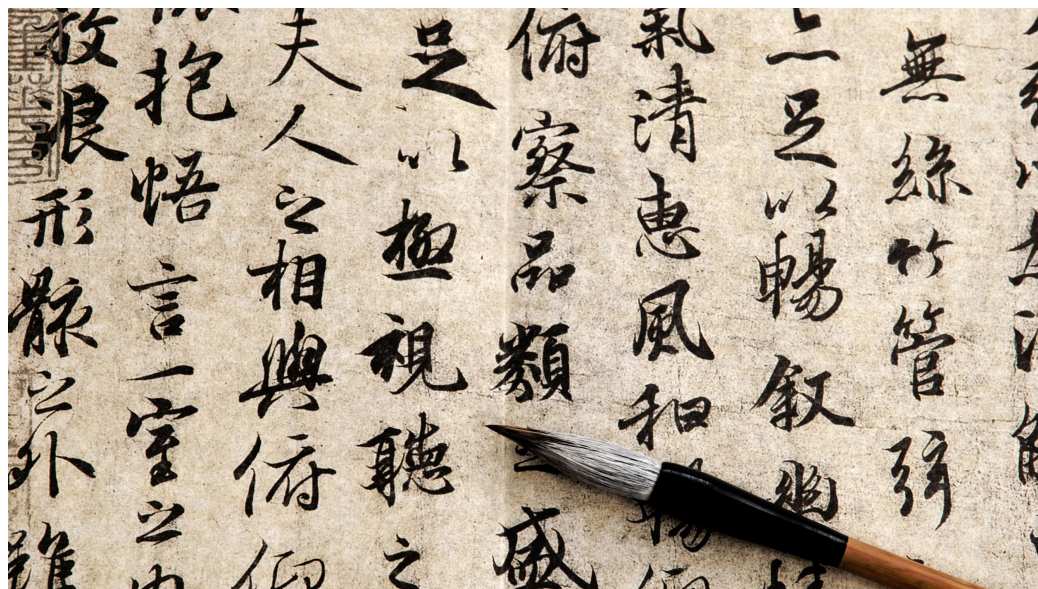 無絲竹管弦
亦足以暢叙幽情
氣清惠風和暢仰
俯察品類之盛
足以極視聽之
夫人之相與俯仰
抱悟言一室之内
放浪形骸之外雖